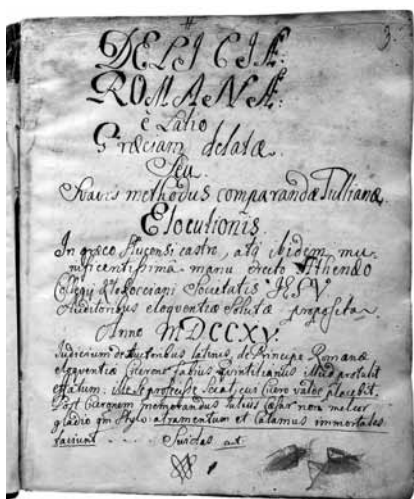 3
DELICIÆ
ROMANÆ:
è Latio
Græciam delatæ.
Seu
Suavis methodus comparandæ Tullianæ
Elocutionis.
In græco Slucensi castro, atq ibidem mu-
nificentissima manu erecto Athenæo
Collegii Klokocciani Societatis JESV
Auditoribus eloquentiæ Solutæ proposita
Anno MDCCXV.
Judicium de Auctoribus latinis, de Principe Romanæ
eloquentiæ Cicerone Fabius Quintilianus illud protulit
effatum: Ille se profecisse sciat, cui Cicero valde placebit.
Post Ciceronem memorandus Iulius Cæsar non melior
gladio qm stylo: atramentum et calamus immortales
faciunt Suidas ait